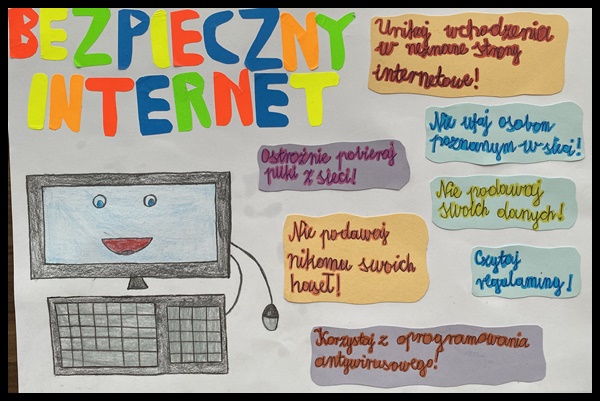 BEZPIECZNY
INTERNET
Unikaj wchodzenia
w nieznane strony
internetowe!
Nie ufaj osobom
poznanym w sieci!
Ostrożnie pobieraj
pliki z sieci!
Nie podawaj
swoich danych!
Nie podawaj
nikomu swoich
haseł!
Czytaj
regulaminy!
Korzystaj z oprogramowania
antywirusowego!